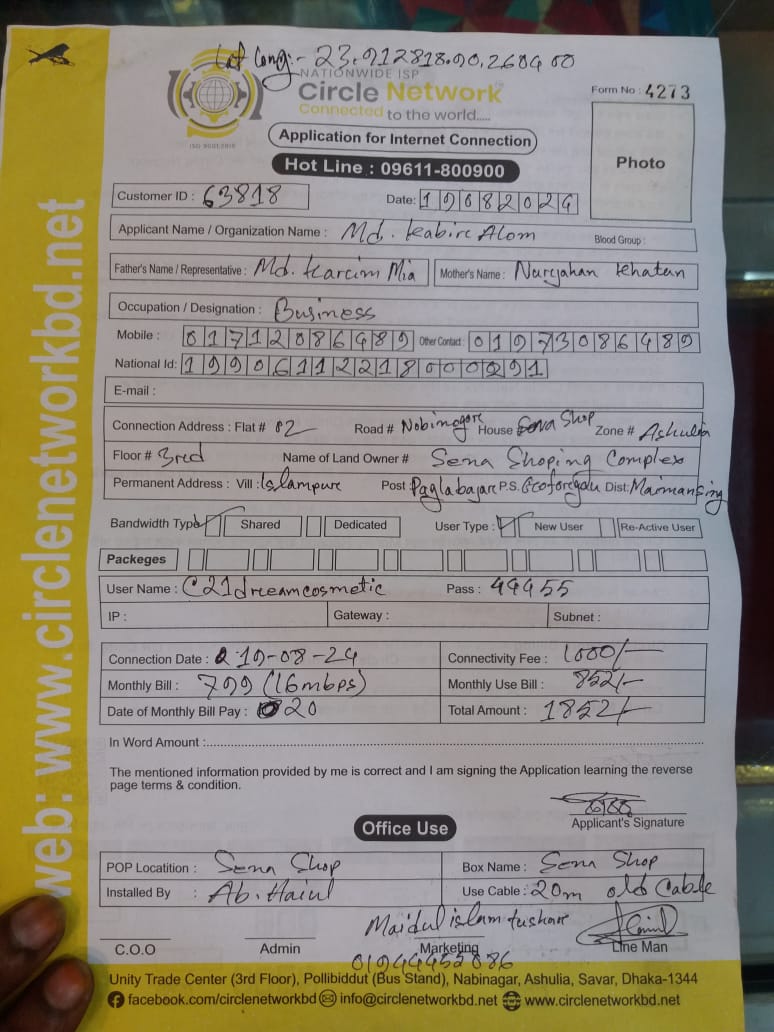 Lat Long:- 23.912818.90.260400
NATIONWIDE ISP
Circle Network
Connected to the world.....
ISO 9001:2015
Form No : 4273
Application for Internet Connection
Hot Line : 09611-800900
Photo
Customer ID : 63818 Date: 19082024
Applicant Name / Organization Name : Md. Kabirc Alom Blood Group :
Father's Name / Representative : Md. Karcim Mia Mother's Name : Nurjahan Khatun
Occupation / Designation : Business
Mobile : 01712086489 Other Contact : 01973086489
National Id: 19906112218000291
E-mail :
Connection Address : Flat # 02 Road # Nobinogore House Sena Shop Zone # Ashulia
Floor # 3red Name of Land Owner # Sena Shoping Complex
Permanent Address : Vill : Islampure Post Paglabajare P.S. Dist: Maimansing
Bandwidth Type Shared Dedicated User Type : New User Re-Active User
Packeges
User Name : C21dreamcosmetic Pass : 44455
IP : Gateway : Subnet :
Connection Date : 19-08-24 Connectivity Fee : 1000/-
Monthly Bill : 799 (16mbps) Monthly Use Bill : 852/-
Date of Monthly Bill Pay : 20 Total Amount : 1852/-
In Word Amount :
The mentioned information provided by me is correct and I am signing the Application learning the reverse
page terms & condition.
Applicant's Signature
Office Use
POP Locatition : Sena Shop Box Name : Sena Shop
Installed By : Ab. Haiul Use Cable : 20m old Cable
Maidul islam tushare
C.O.O Admin Marketing Line Man
01944455086
Unity Trade Center (3rd Floor), Pollibiddut (Bus Stand), Nabinagar, Ashulia, Savar, Dhaka-1344
facebook.com/circlenetworkbd info@circlenetworkbd.net www.circlenetworkbd.net
web: www.circlenetworkbd.net